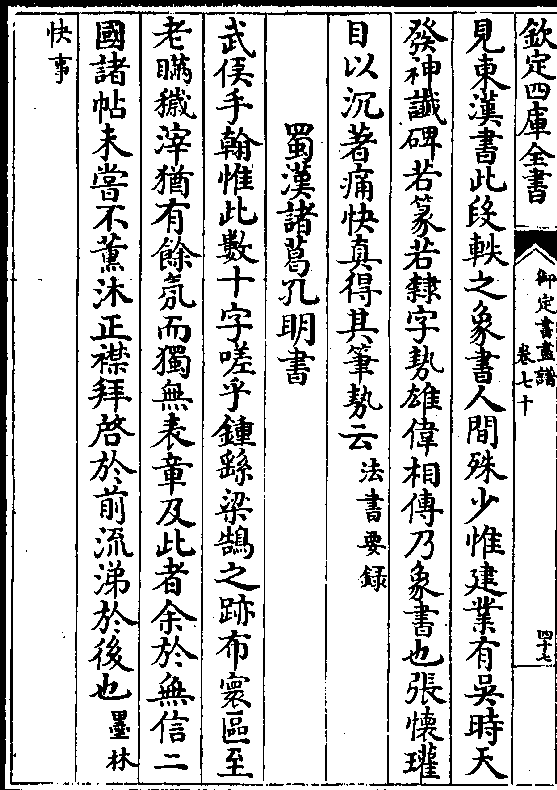 欽定四庫全書
御定書畫譜
卷七十
四十七
見東漢書此段軼之象書人間殊少惟建業有吳時天
發神讖碑若篆若隸字勢雄偉相傳乃象書也張懷瓘
目以沉著痛快真得其筆勢云法書要録
蜀漢諸葛孔明書
武侯手翰惟此數十字嗟乎鍾繇梁鵠之跡布寰區至
老瞞穢滓猶有餘氛而獨無表章及此者余於無信二
國諸帖未嘗不薰沐正襟拜啓於前流涕於後也墨林
快事